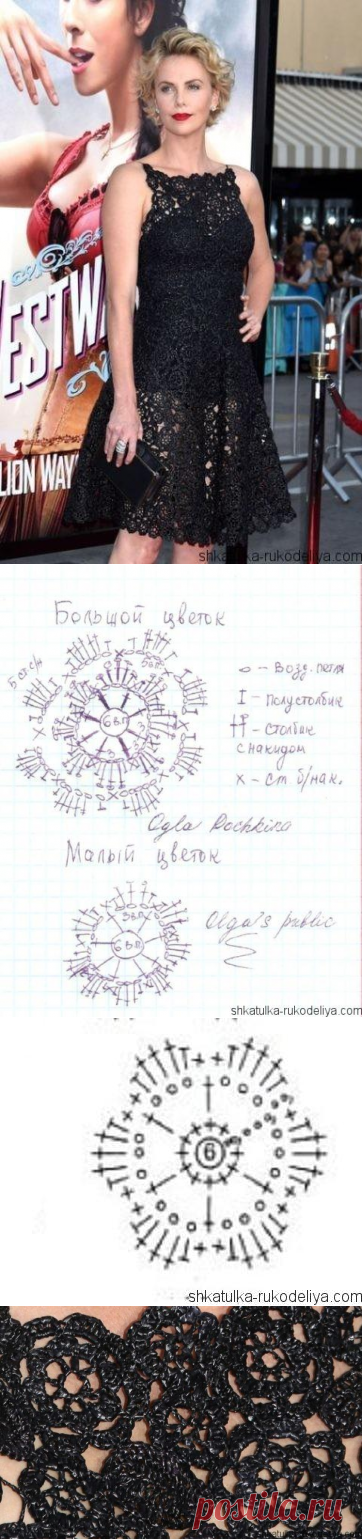 ESTW
LION WAY
shkatulka-rukodeliya.com
Большой цветок
5 ст с/н
5вп
6вп
o - Возд. петля
I - полустолбик
столбик
с накидом
x - ст б/нак.
Olga Rochkina
Малый цветок
3вп
6вп
Olga's public
shkatulka-rukodeliya.com
6
shkatulka-rukodeliya.com
postila.ru